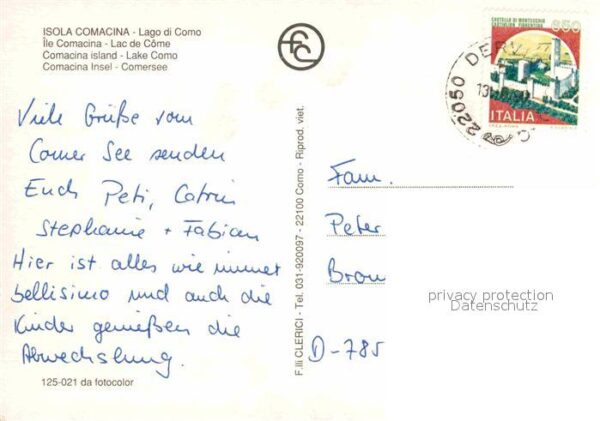 ISOLA COMACINA - Lago di Como
Île Comacina - Lac de Côme
Comacina island - Lake Como
Comacina Insel - Comersee
CASTELLO DI MONTECCHIO
CASTIGLION FIORENTINO
650
22050 DERV
ITALIA
Viele Grüße vom
Comer See senden
Euch Peti, Catrin
Stephanie + Fabian
Hier ist alles wie immer
bellisimo und auch die
Kinder genießen die
Abwechslung.
125-021 da fotocolor
F.lli CLERICI - Tel. 031-920097 - 22100 Como - Riprod. viet.
Fam.
Peter
Brom
D-785
privacy protection
Datenschutz